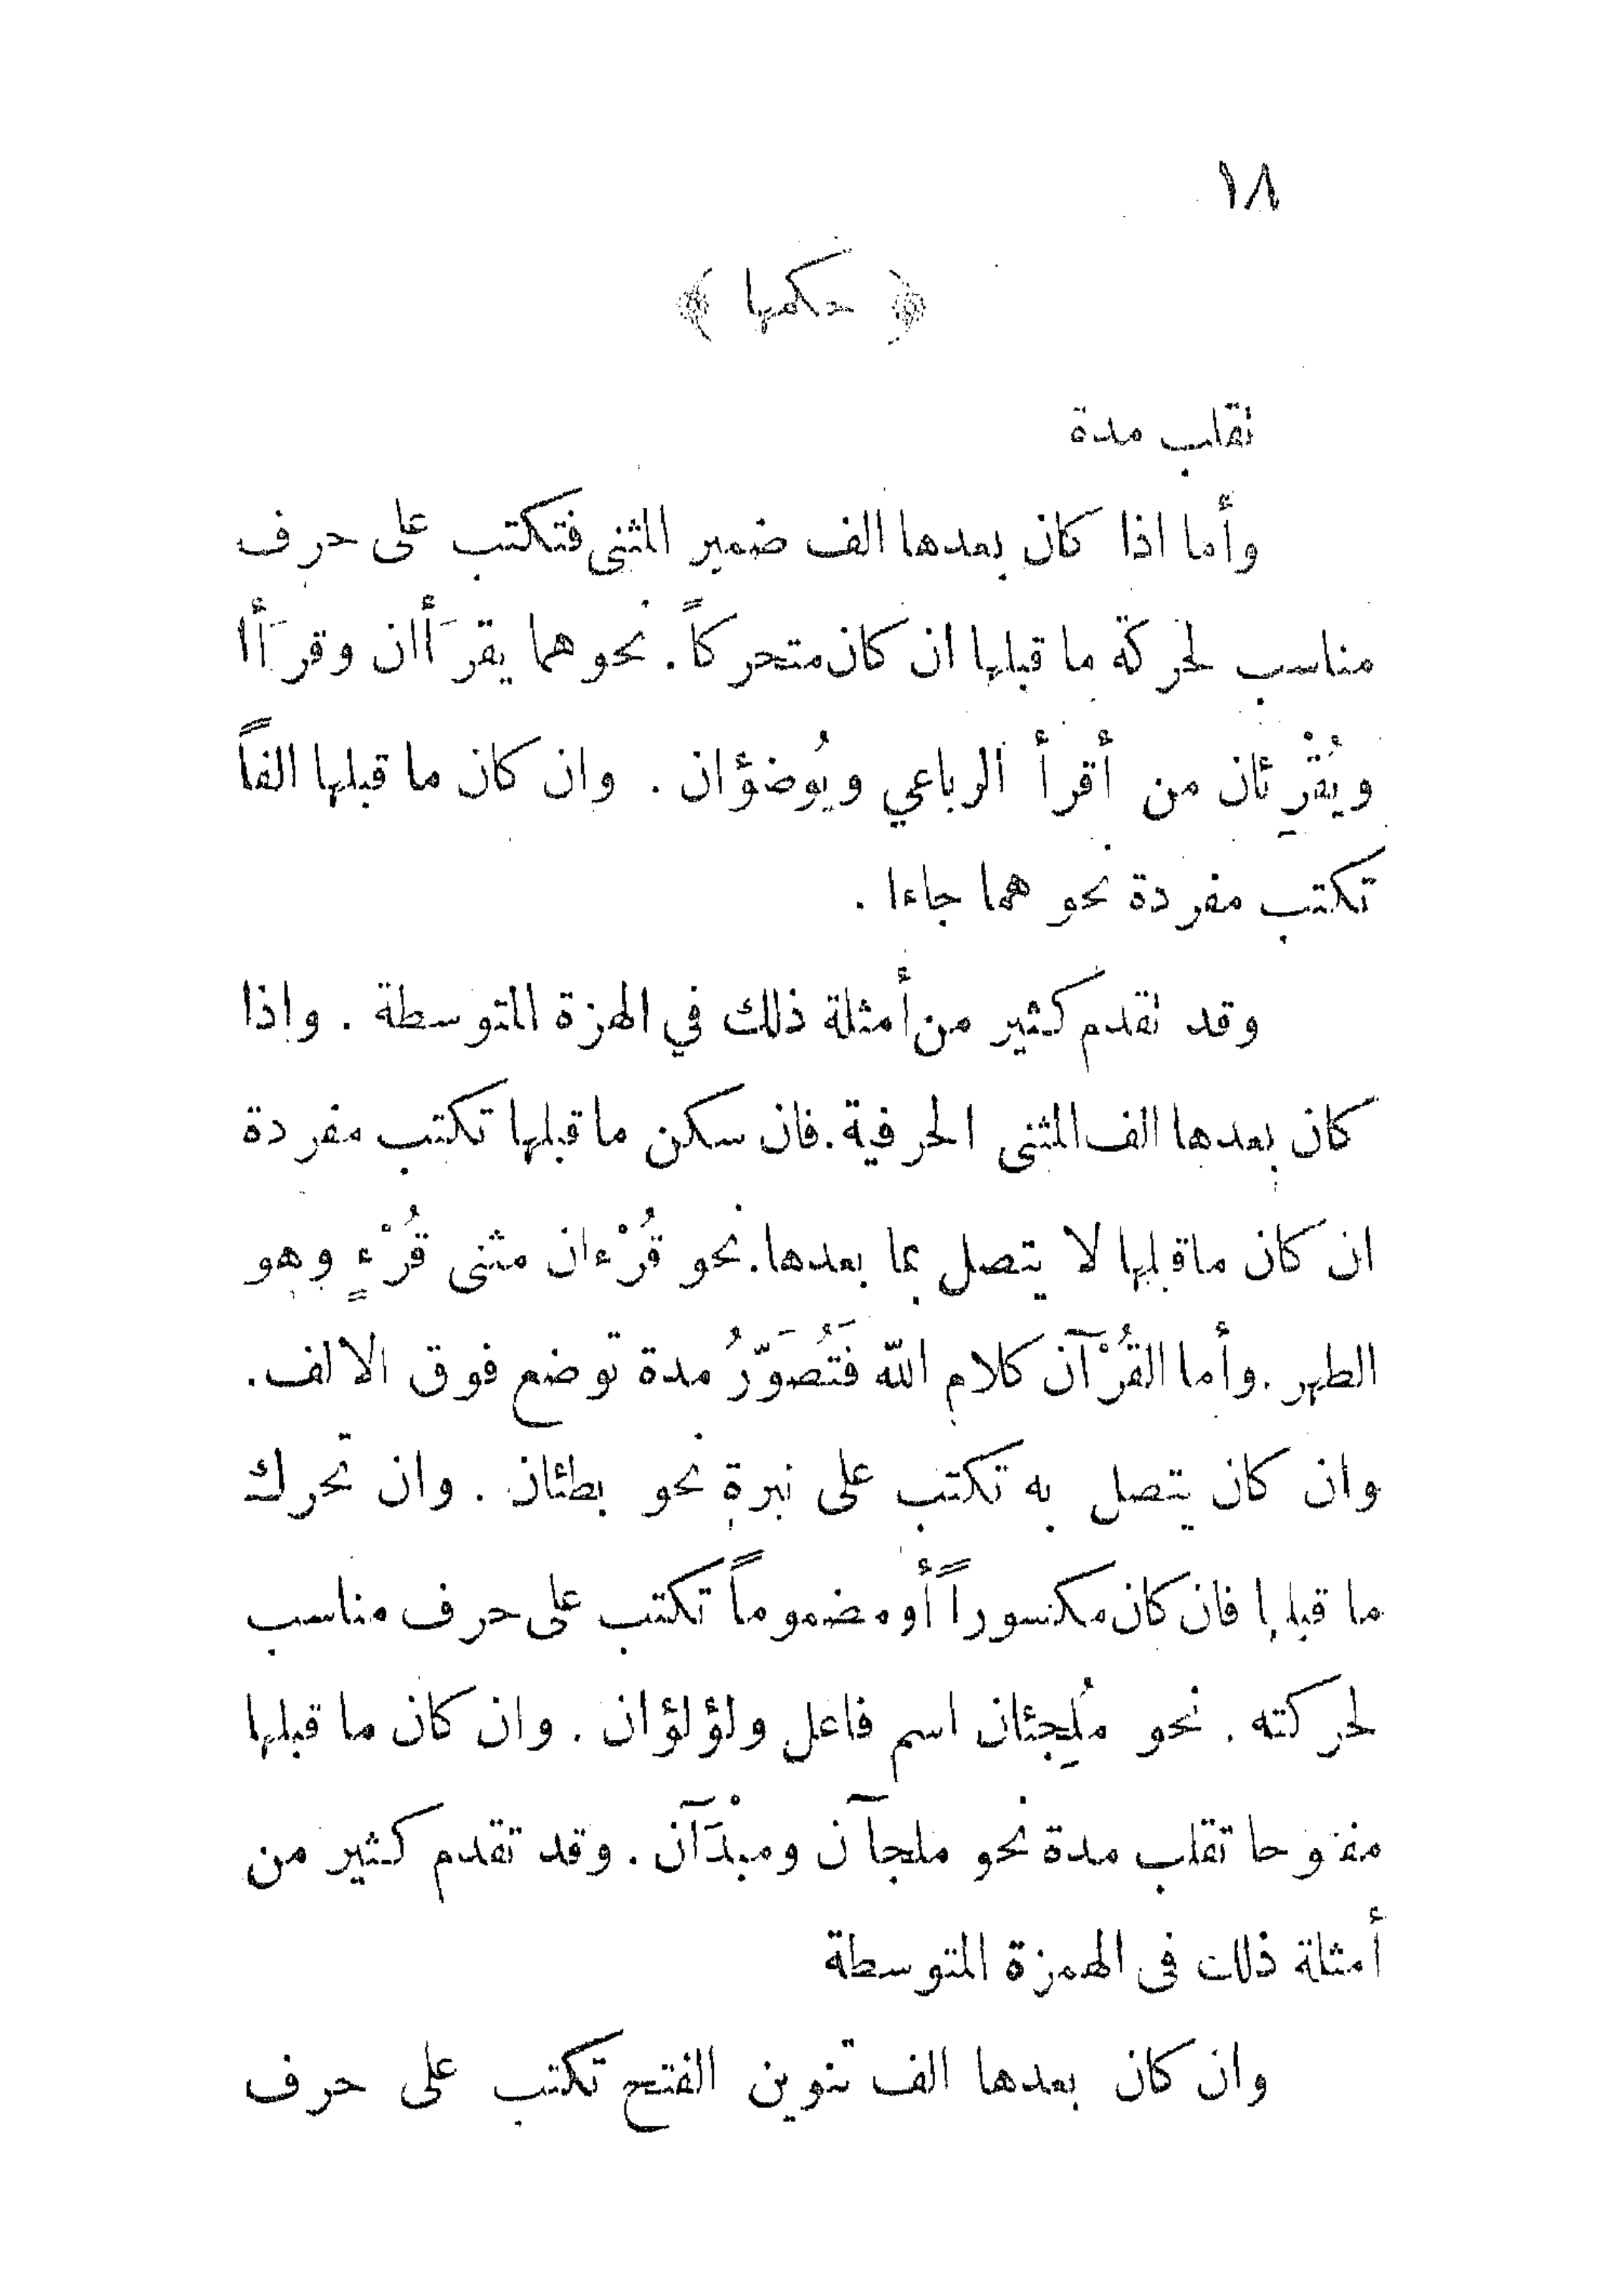 ١٨
﴿ حكمها ﴾
تقلب مدة
وأما اذا كان بعدها الف ضمير المثنى فتكتب على حرف
مناسب لحركة ما قبلها ان كان متحركاً. نحو هما يقرَأان وقرَأا
ويُقْرِئان من أقرأ الرباعي ويُوضؤان . وان كان ما قبلها الفاً
تكتب مفردة نحو هما جاءا .
وقد تقدم كثير من أمثلة ذلك في الهمزة المتوسطة . واذا
كان بعدها الف المثنى الحرفية. فان سكن ما قبلها تكتب مفردة
ان كان ماقبلها لا يتصل بما بعدها. نحو قُرْءان مثنى قُرْءٍ وهو
الطهر . وأما القُرْآن كلام الله فَتُصَوَّرُ مدة توضع فوق الالف.
وان كان يتصل به تكتب على نبرة نحو بطئان . وان تحرك
ما قبلها فان كان مكسوراً أو مضموماً تكتب على حرف مناسب
لحركته . نحو مُلجِئان اسم فاعل ولؤلؤان . وان كان ما قبلها
مفتوحا تقلب مدة نحو ملجآن ومبْدَآن . وقد تقدم كثير من
أمثلة ذلك فى الهمزة المتوسطة
وان كان بعدها الف تنوين الفتح تكتب على حرف